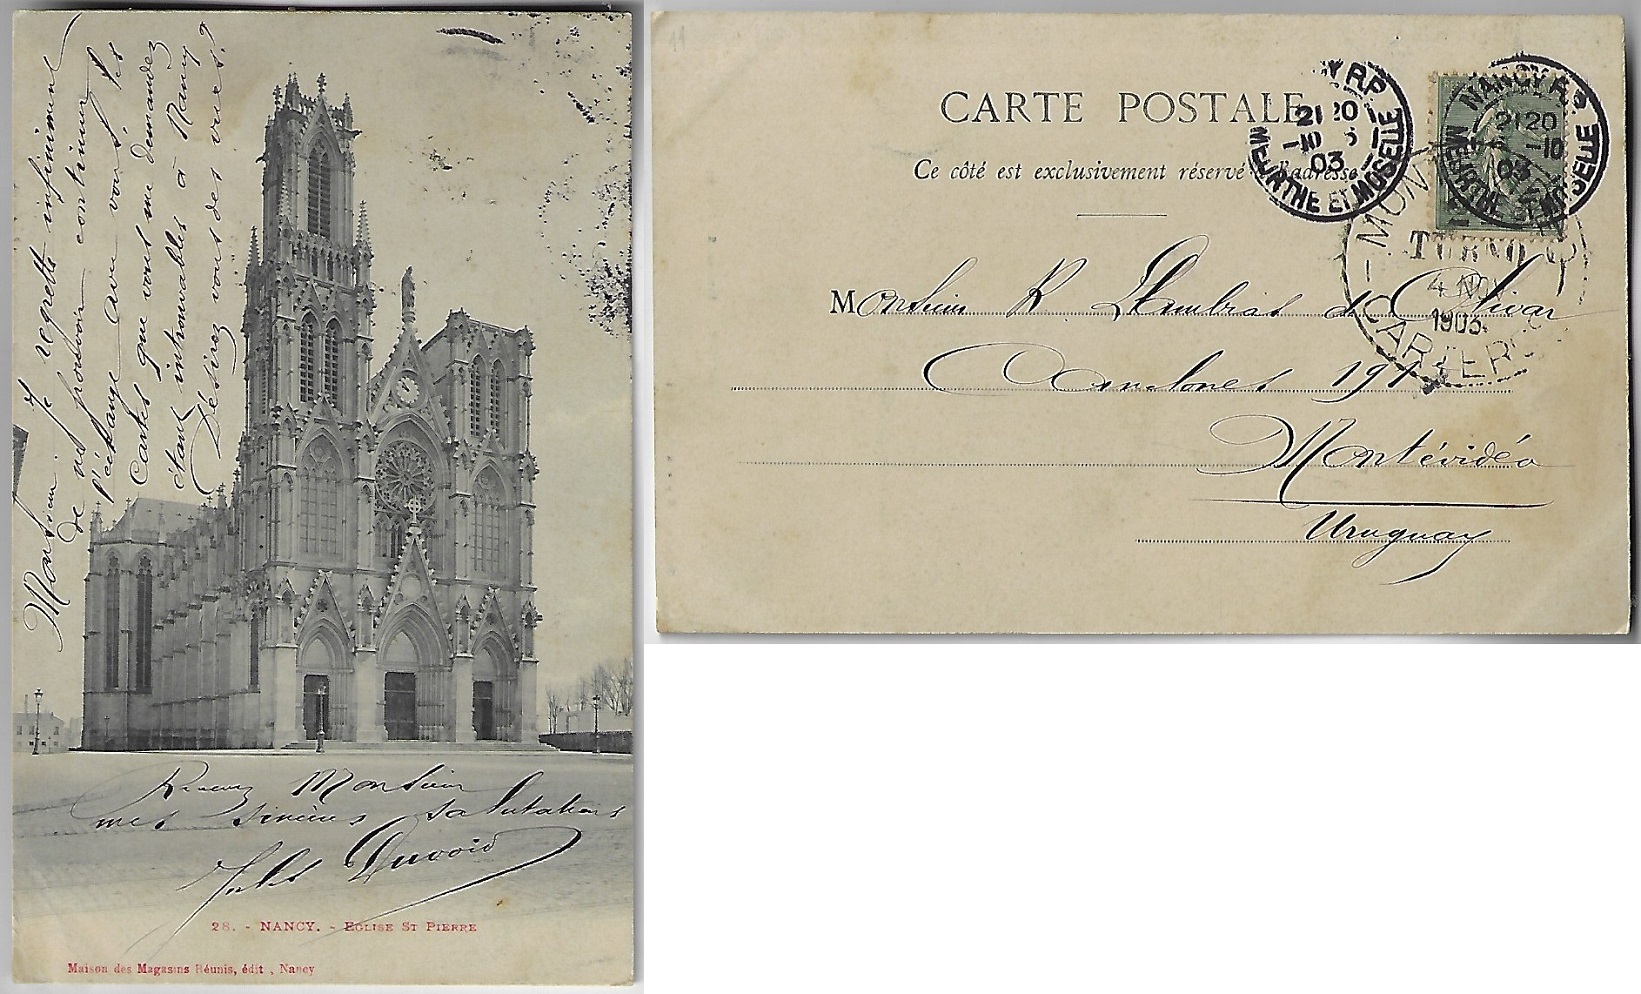 Monsieur. Je regrette infiniment
de ne pouvoir continuer
l'échange avec vous les
cartes que vous me demandez
étant introuvables à Nancy
Désirez vous des vues?
Recevez Monsieur
mes sincères salutations
Jules
28. - NANCY. - EGLISE ST PIERRE
Maison des Magasins Réunis, édit, Nancy
CARTE POSTALE
Ce côté est exclusivement réservé à l'adresse
NANCY R.P.
2120
6-10
03
MEURTHE ET MOSELLE
Y R.P.
2120
-10
03
MEURTHE ET MOSELLE
TURNO
4 NOV
1903
CARTEROS
Monsieur R. de
197
Montévidéo
Uruguay